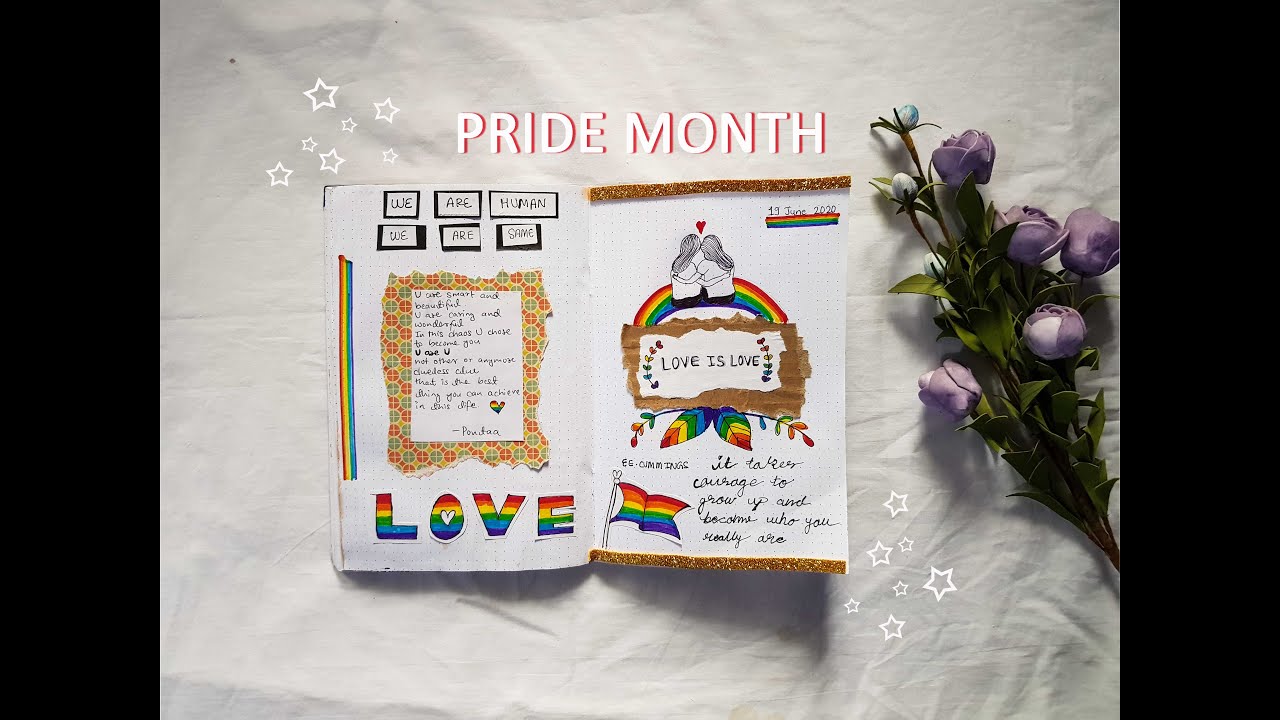 PRIDE MONTH
WE ARE HUMAN
WE ARE SAME
U are smart and
beautiful
U are caring and
wonderful
In this chaos U chose
to become you
U are U
not other or anymore
clueless clue
that is the best
thing you can achieve
in this life
LOVE
19 June 2020
LOVE IS LOVE
EE.CUMMINGS
it takes
courage to
grow up and
become who you
really are